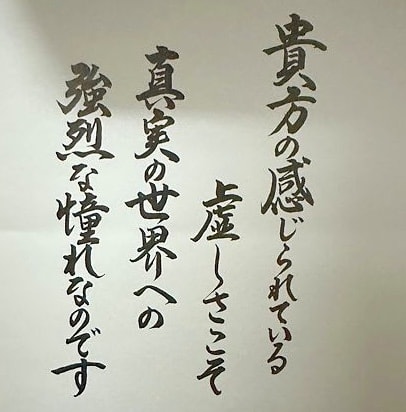 貴方の感じられている
虚しさこそ
真実の世界への
強烈な憧れなのです